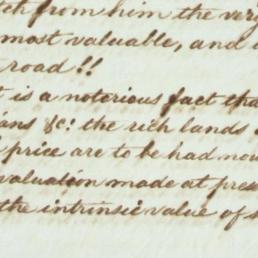 from him the very
most valuable, and
road!!
is a notorious fact tha
ans &c: the rich lands
price are to be had now
valuation made at pres
the intrinsic value of s